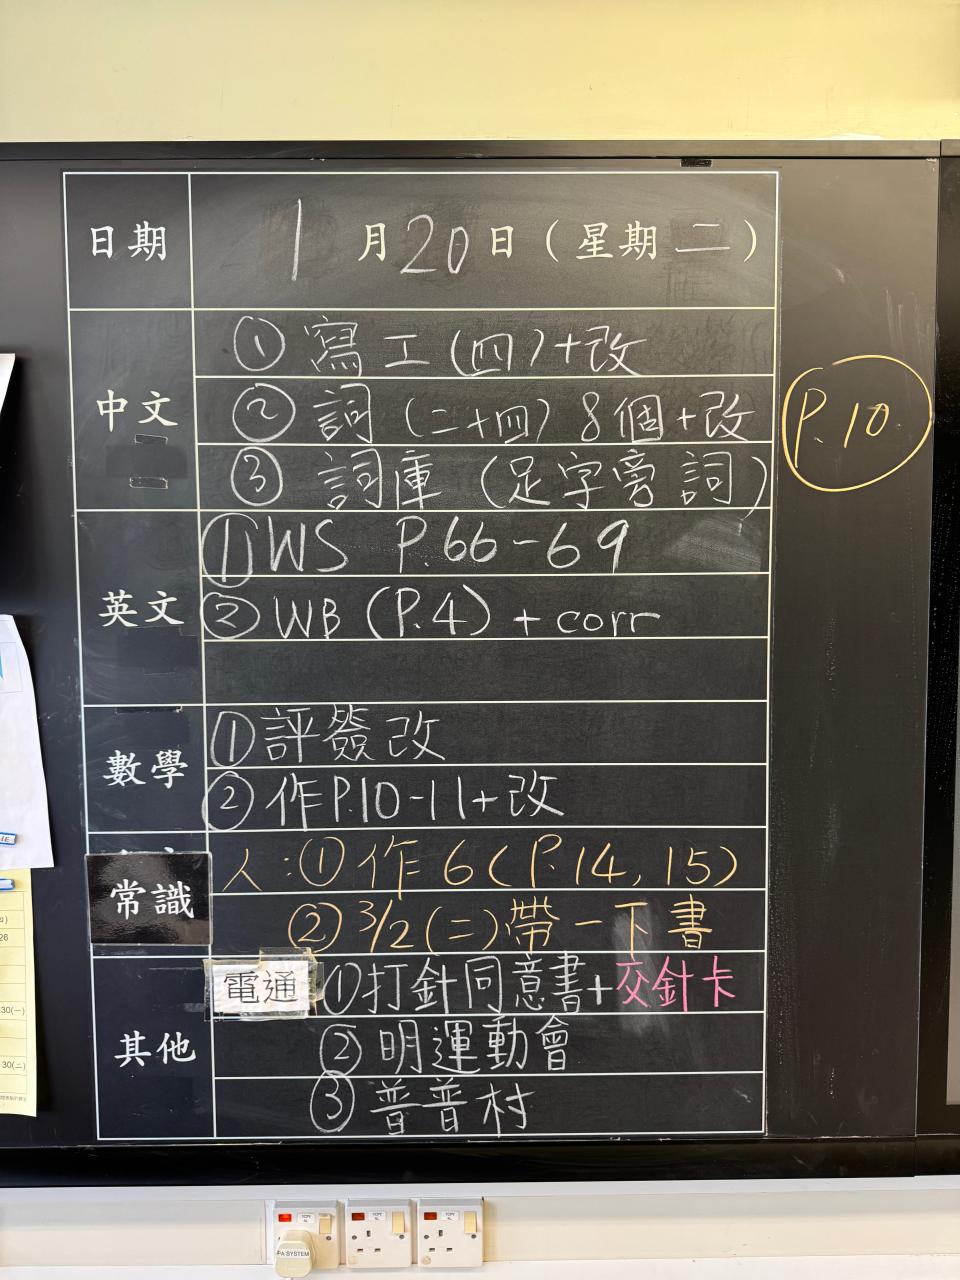 日期 1月20日(星期二)
中文
①寫工(四)+改
②詞(二十四)8個+改
P.10
③詞庫(足字旁詞)
英文
①WS P.66-69
②WB (P.4) + corr
數學
①評簽改
②作P.10-11+改
常識
人:①作6(P.14, 15)
②3/2(二)帶一下書
其他
電通 ①打針同意書+交針卡
②明運動會
③普普村
26
30(一)
30(二)
PA SYSTEM